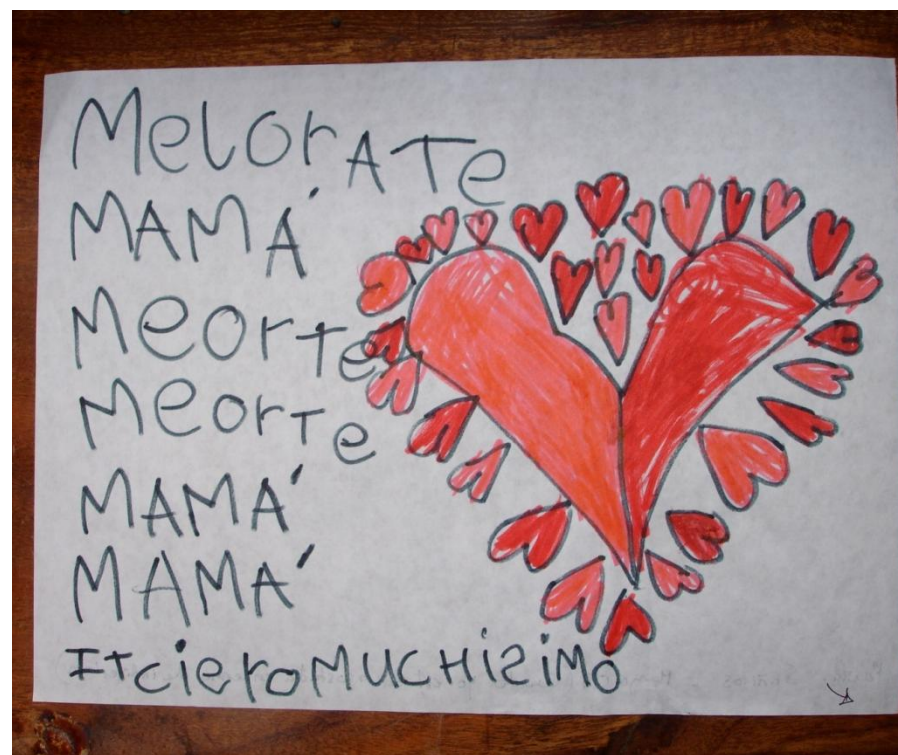 MelorATe
MAMÁ
MeorTe
MeorTe
MAMÁ
MAMÁ
ITcieroMUCHÍSIMO